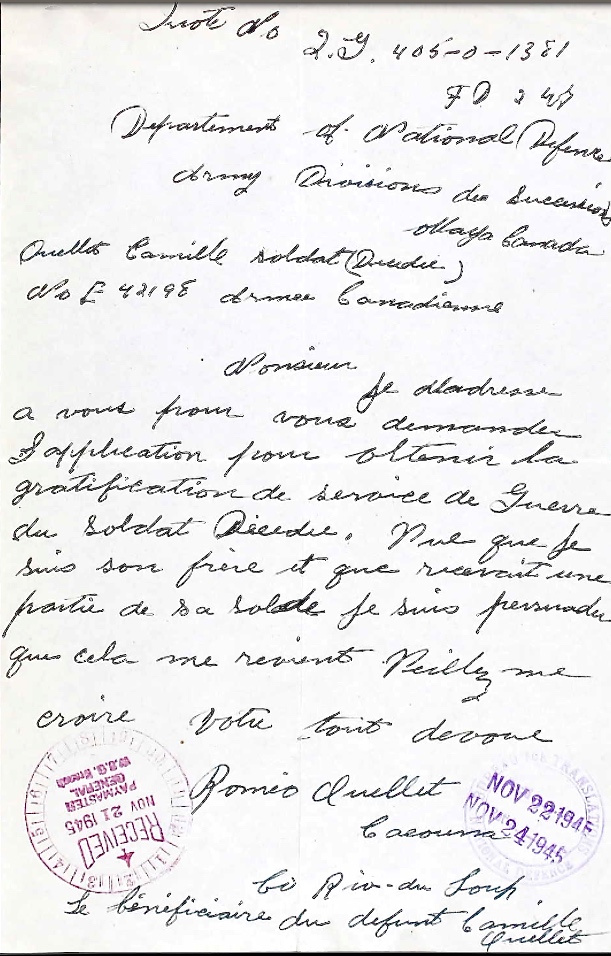 Quote No
2.J. 405-0-1381
FD 247
Departement of National Defence
Army Divisions des Sucessions
Ottawa Canada
Ouellet Camille soldat (Decedie)
No E 42198 Armee Canadienne
Monsieur
Je m'adresse
a vous pour vous demander
l'application pour obtenir la
gratification de service de Guerre
du soldat Décedie. Vue que Je
suis son frère et que recevait une
partie de sa solde Je suis persuader
que cela me revient Veillez me
croire Votre tout devoué
Roméo Ouellet
Cacouna
Co Riv-du Loup
Le bénéficiaire du defunt Camille
Ouellet
RECEIVED
NOV 21 1945
PAYMASTER
GENERAL
W.S.G. Branch
NOV 22 1945
NOV 24 1945